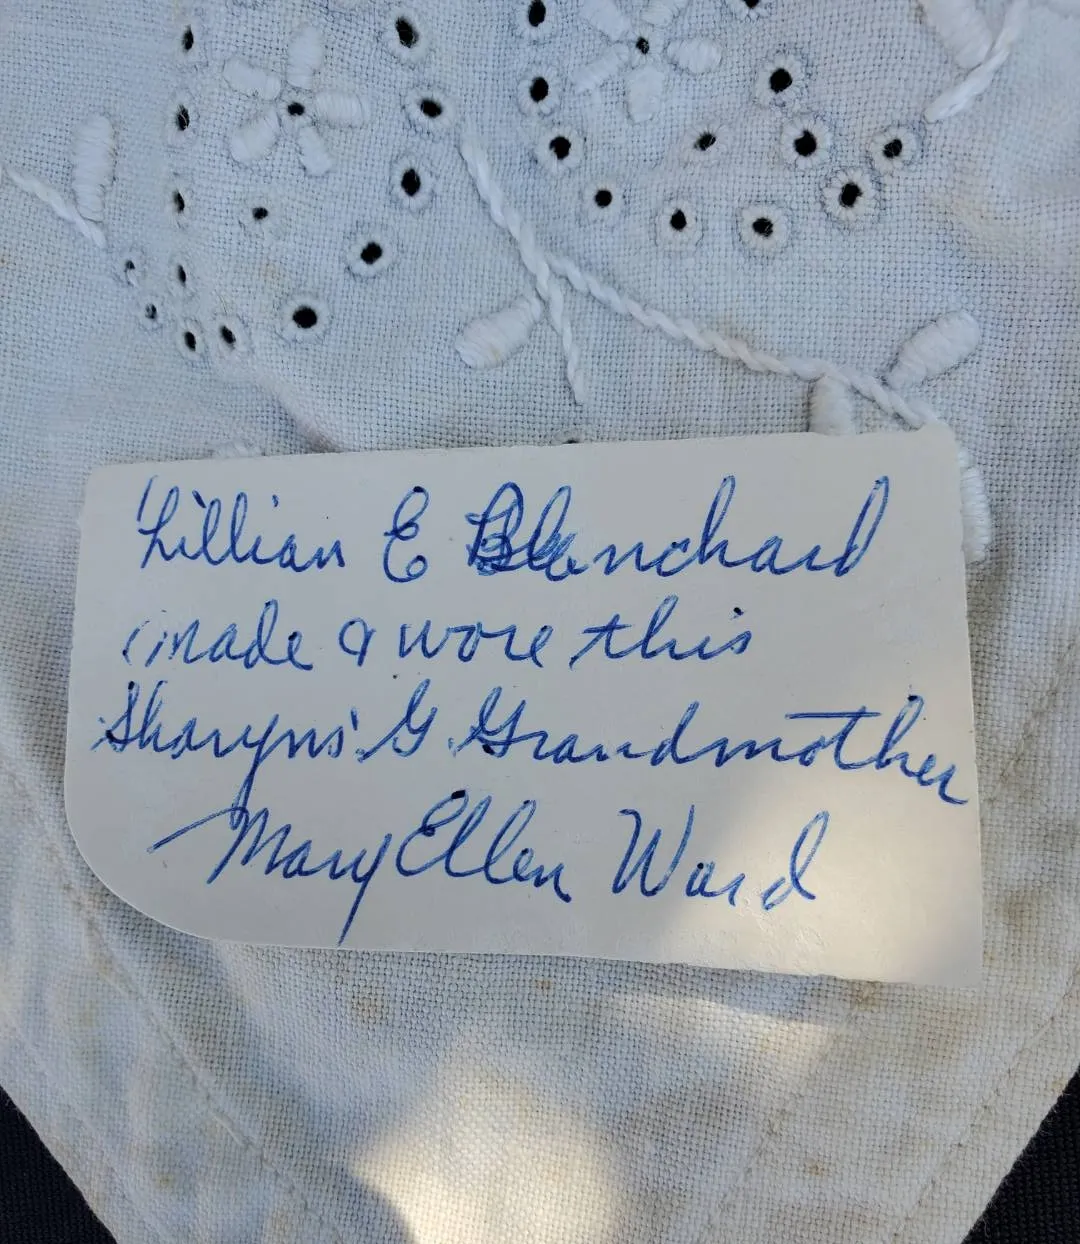 Lillian E Blanchard
made & wore this
Sharyns' G. Grandmother
Mary Ellen Ward